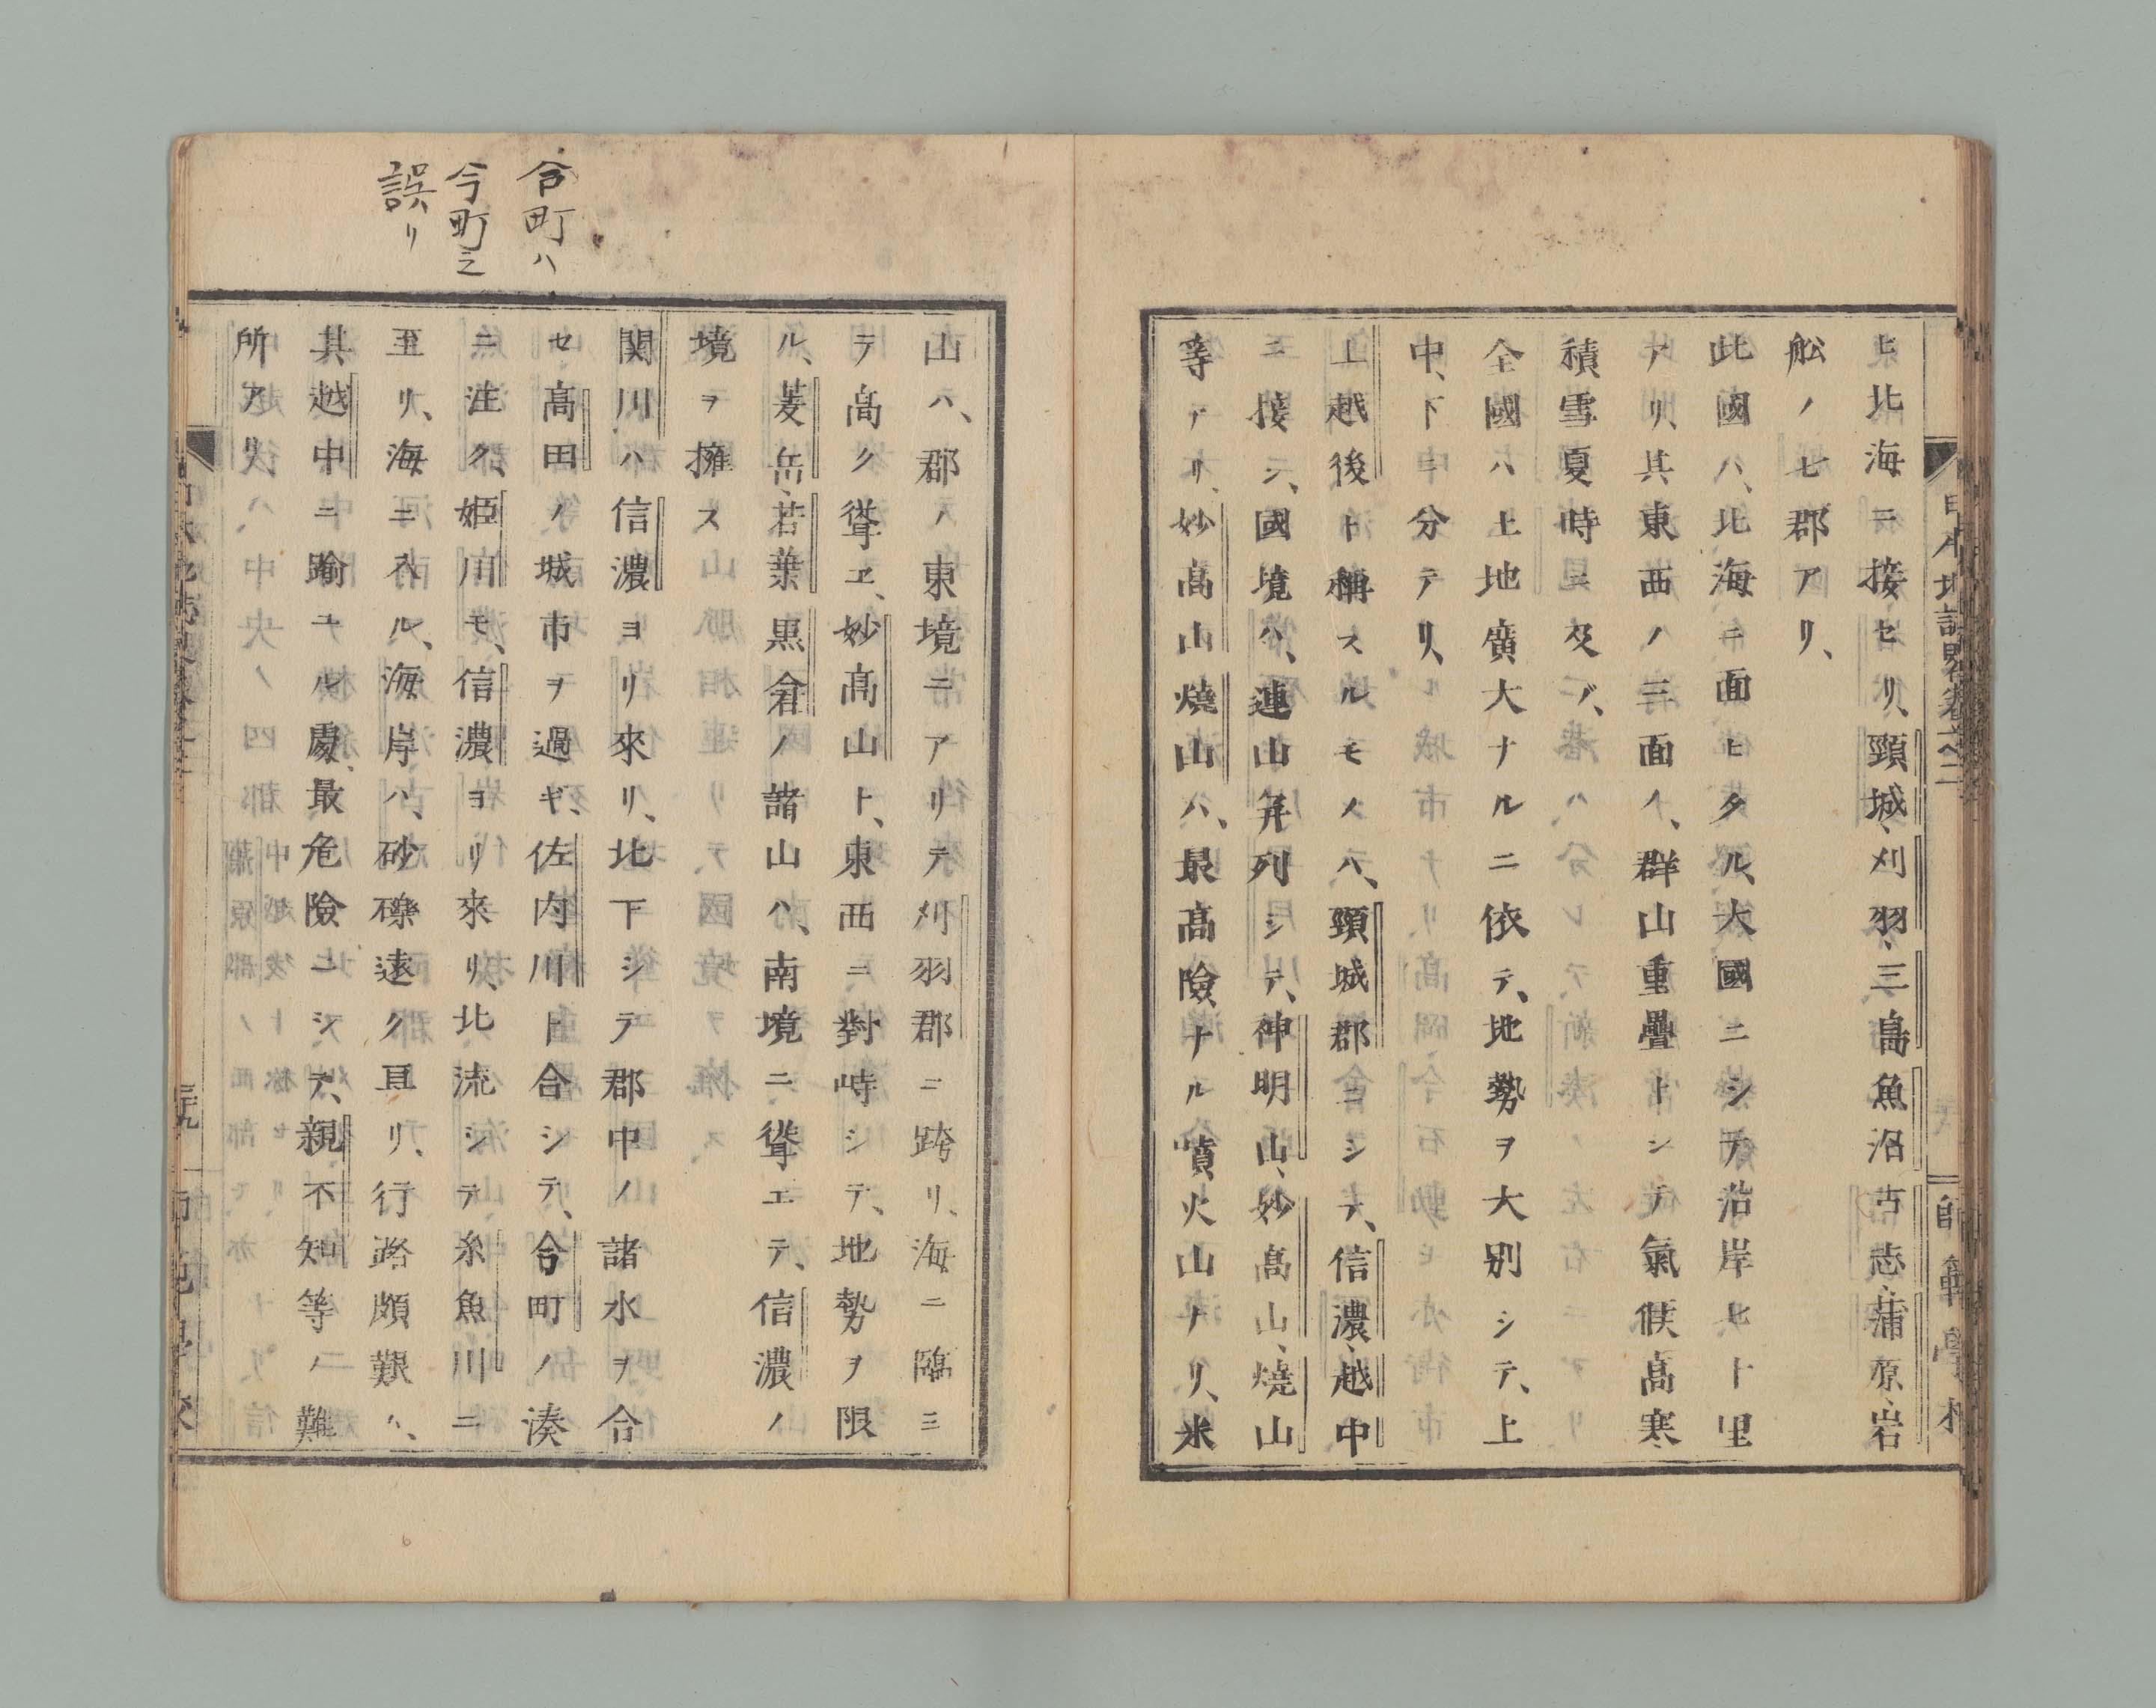 ヒ北海ニ接セリ、頸城、刈羽、三島魚沼古志、蒲原、岩
舩ノ七郡アリ、
此國ハ、北海ニ面ヒタル、大國ニシテ沿岸七十里
アリ、其東西ノ三面ハ、群山重疊トシテ氣候高寒
積雪夏時ニ及ブ、
全國ハ土地廣大ナルニ依テ、地勢ヲ大別シテ、上
中、下ニ分テリ、
上越後ト稱スルモノハ、頸城郡ニシテ、信濃、越中
ニ接シ、國境ハ、連山并列シテ、神明山、妙高山、燒山
等アリ、妙高山燒山ハ、最高險ナル噴火山ナリ、米
山ハ、郡ノ東境ニアリテ刈羽郡ニ跨リ、海ニ臨ミ
テ高ク聳ヱ、妙高山ト、東西ニ對峙シテ、地勢ヲ限
ル、菱岳、若葉黒倉ノ諸山ハ、南境ニ聳エテ、信濃ノ
境ヲ擁ス
関川ハ信濃ヨリ來リ、北下シテ郡中ノ諸水ヲ合
セ、高田ノ城市ヲ過ギ、佐内川ト合シテ、合町ノ湊
ニ注ク、姫川モ、信濃ヨリ來リ、北流シテ糸魚川ニ
至リ、海ニ入ル、海岸ハ、砂礫遠ク亘リ、行路頗艱ク、
其越中ニ踰ユル處、最危險ニシテ、親不知等ノ難
所アリ、
合町ハ
今町之
誤リ
日本地誌略卷之二
師範學校